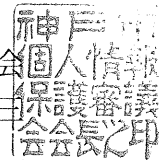 神戸
個人情報
保護審議
会会長之印
会